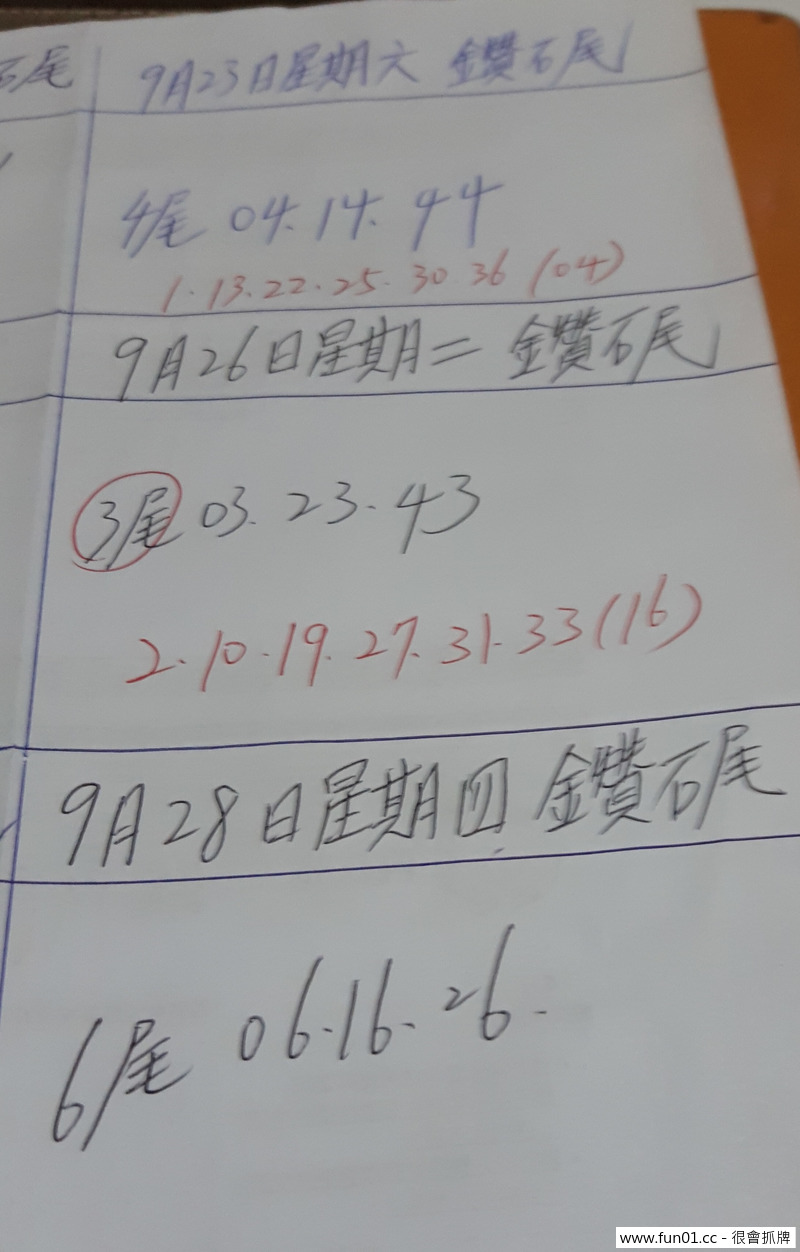 石尾
9月23日星期六 鑽石尾
4尾 04.14.44
1.13.22.25.30.36(04)
9月26日星期二 鑽石尾
3尾 03.23.43
2.10.19.27.31.33(16)
9月28日星期四 鑽石尾
6尾 06.16.26.
www.fun01.cc - 很會抓牌